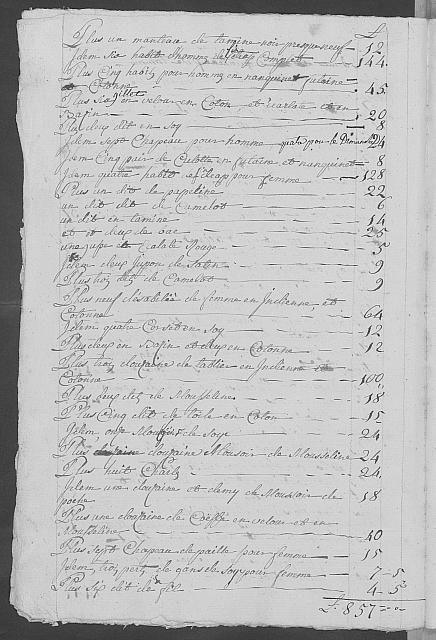 £
Plus un manteau de tamine noir presque neuf — 12
Idem six habit d'homme de drap Complet — 144
Plus Cinq habits pour homme en nanquinet futaine
et Cotonne — 45
Plus six gillet en velour en Coton, et écarlate et en
Basin — 20
Plus deux dit en soy — 8
Idem sept Chapeau pour homme quatre pour le Dimanche 24
Idem Cinq pair de Culotte en futaine et nanquinet — 8
Idem quatre habit de drap pour femme — 128
Plus un dit de papeline — 22
un dit dit de Camelot — 6
un dit en tamine — 14
et deux de — 25
une jupe et Rouge — 5
Idem deux Jupon de Satin — 9
Plus trois dit de Camelot — 9
Plus neuf desabilée de femme en Indienne, et
Cotonne — 64
Idem quatre Corset en soy — 12
Plus deux en Basin et deux en Cotonne — 12
Plus trois douzaine de tablier en Indienne et
Cotonne — 100
Plus deux dit de Mousseline — 18
Plus Cinq dit de toile en Coton — 15
Idem onze Mouchoir de Soye — 24
Plus douzaine Mousoir de Mousseline 24
Plus huit — 24
Idem une douzaine et demy de Mousoir de
poche — 18
Plus une douzaine de Coëffe en velour et en
Mousseline — 40
Plus sept Chapeau de paille pour femme — 15
Idem trois pair de gans de Soy pour femme — 7 - 5
Plus six dit de fil — 4 - 5
£ 857 - -